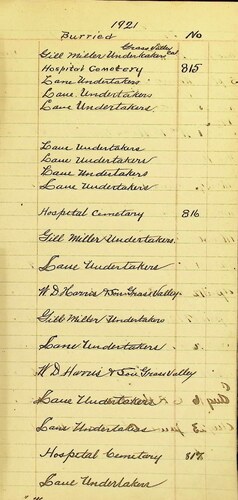 1921
Burried No
Grass Valley Cal
Gill Miller Undertakers
Hospital Cemetery 815
Lane Undertakers
Lane Undertakers
Lane Undertakers
Lane Undertakers
Lane Undertakers
Lane Undertakers
Lane Undertakers
Hospital Cemetary 816
Gill Miller Undertakers
Lane Undertakers
W D Harris & Son Grass Valley
Gill Miller Undertakers
Lane Undertakers
W D Harris & Son Grass Valley
Lane Undertakers
Lane Undertakers
Hospital Cemetary 817
Lane Undertakers